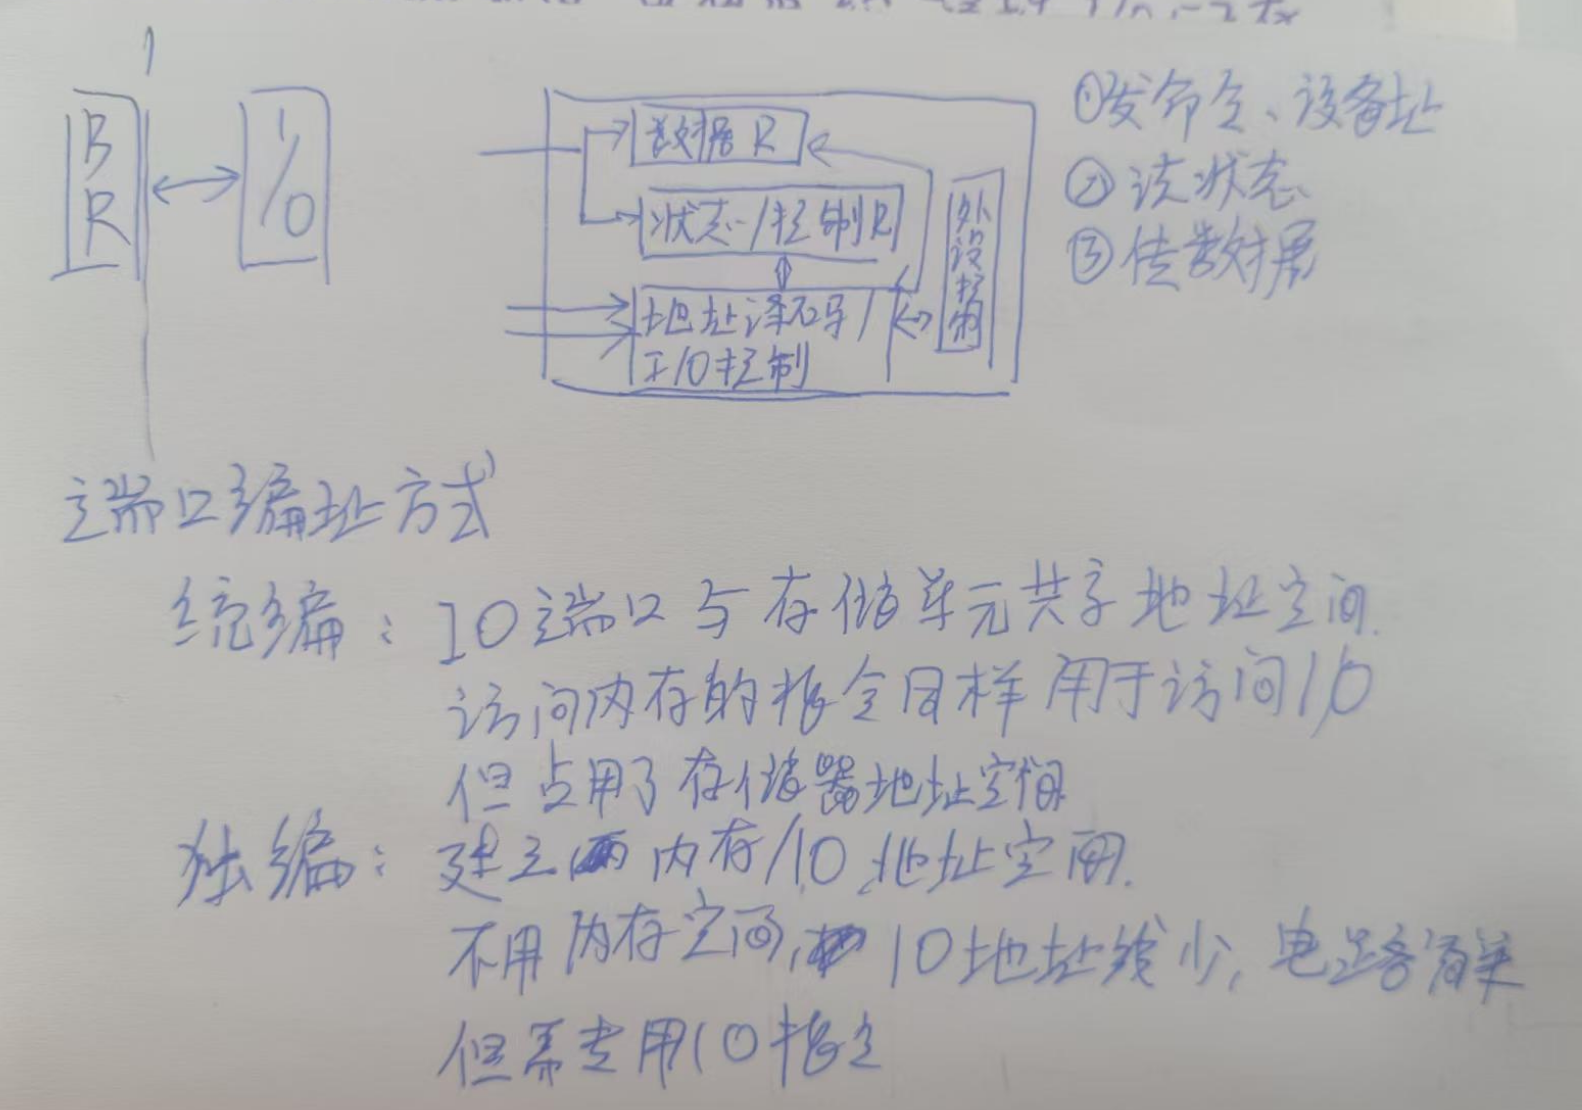 B
R
I/O
数据R
状态/控制R
地址译码/
I/O控制
外设控制
①发命令、设备址
②读状态
③传数据
端口编址方式
统编：IO端口与存储单元共享地址空间.
访问内存的指令同样用于访问I/O
但占用了存储器地址空间
独编：建立两内存/IO地址空间.
不用内存空间, IO地址线少, 电路简单
但需专用IO指令